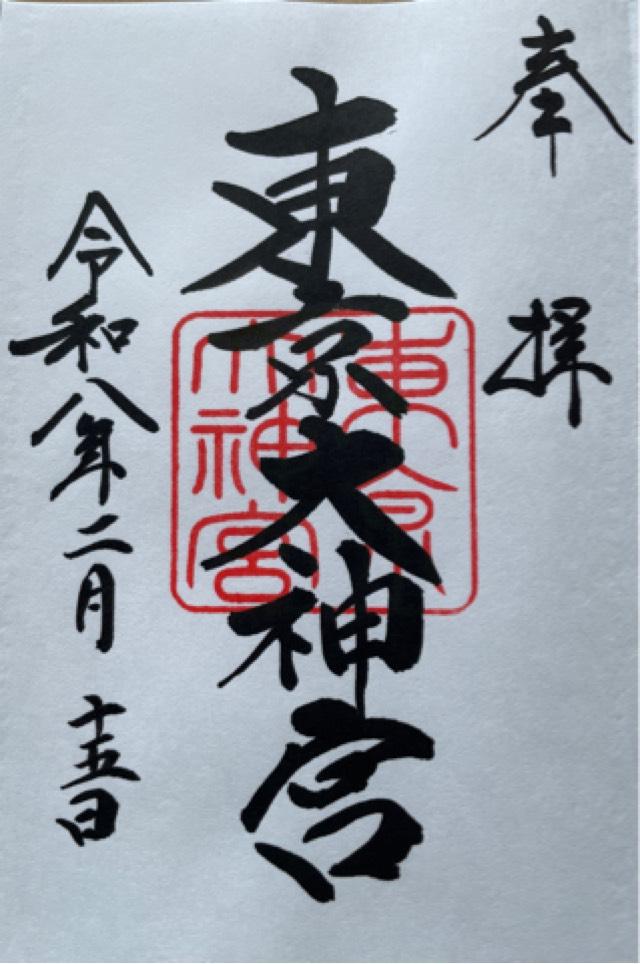 奉拝
東京大神宮
東京
大神宮
令和八年二月十五日